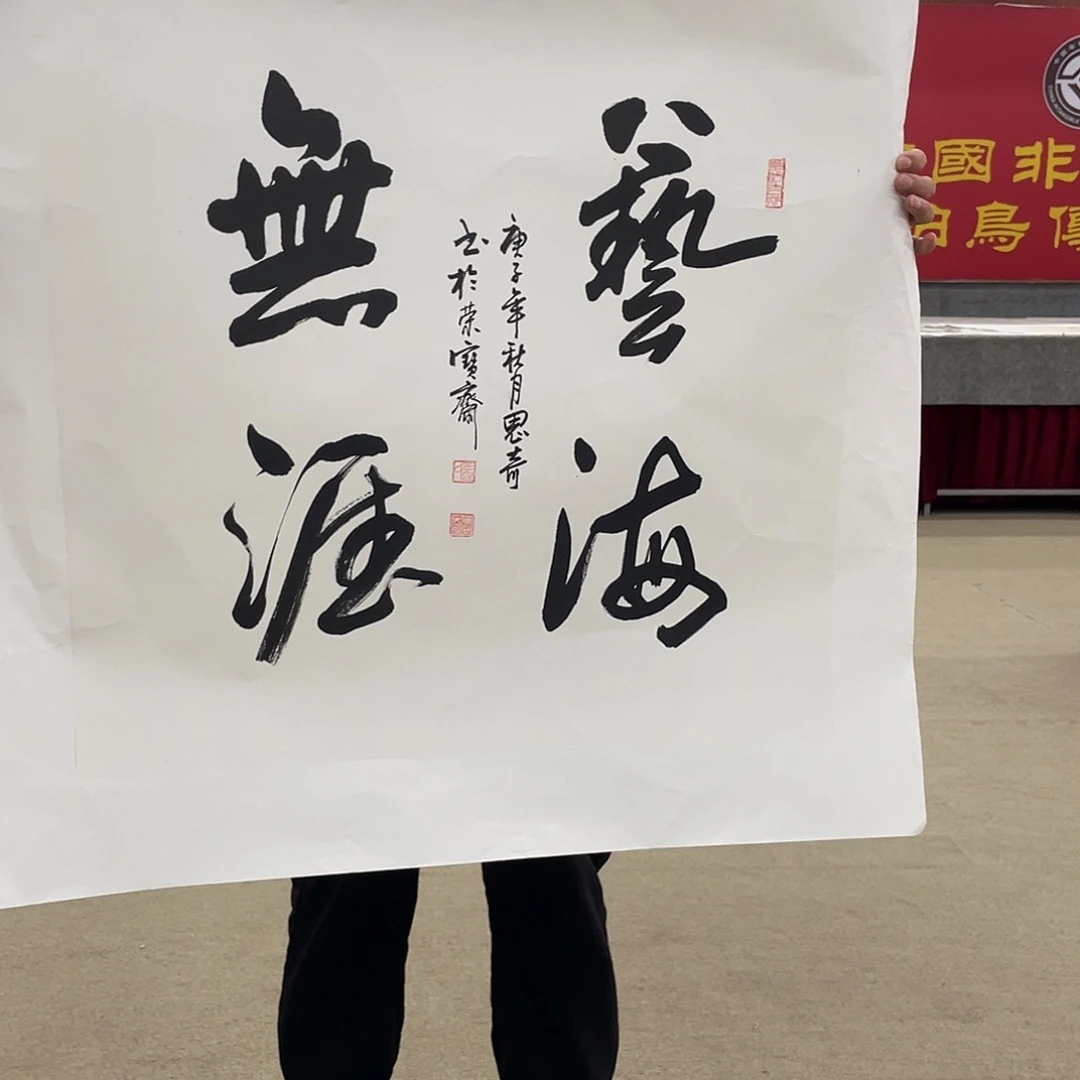 藝海
無涯
庚子年秋月思奇
书於荣寶齋
國非
鳥